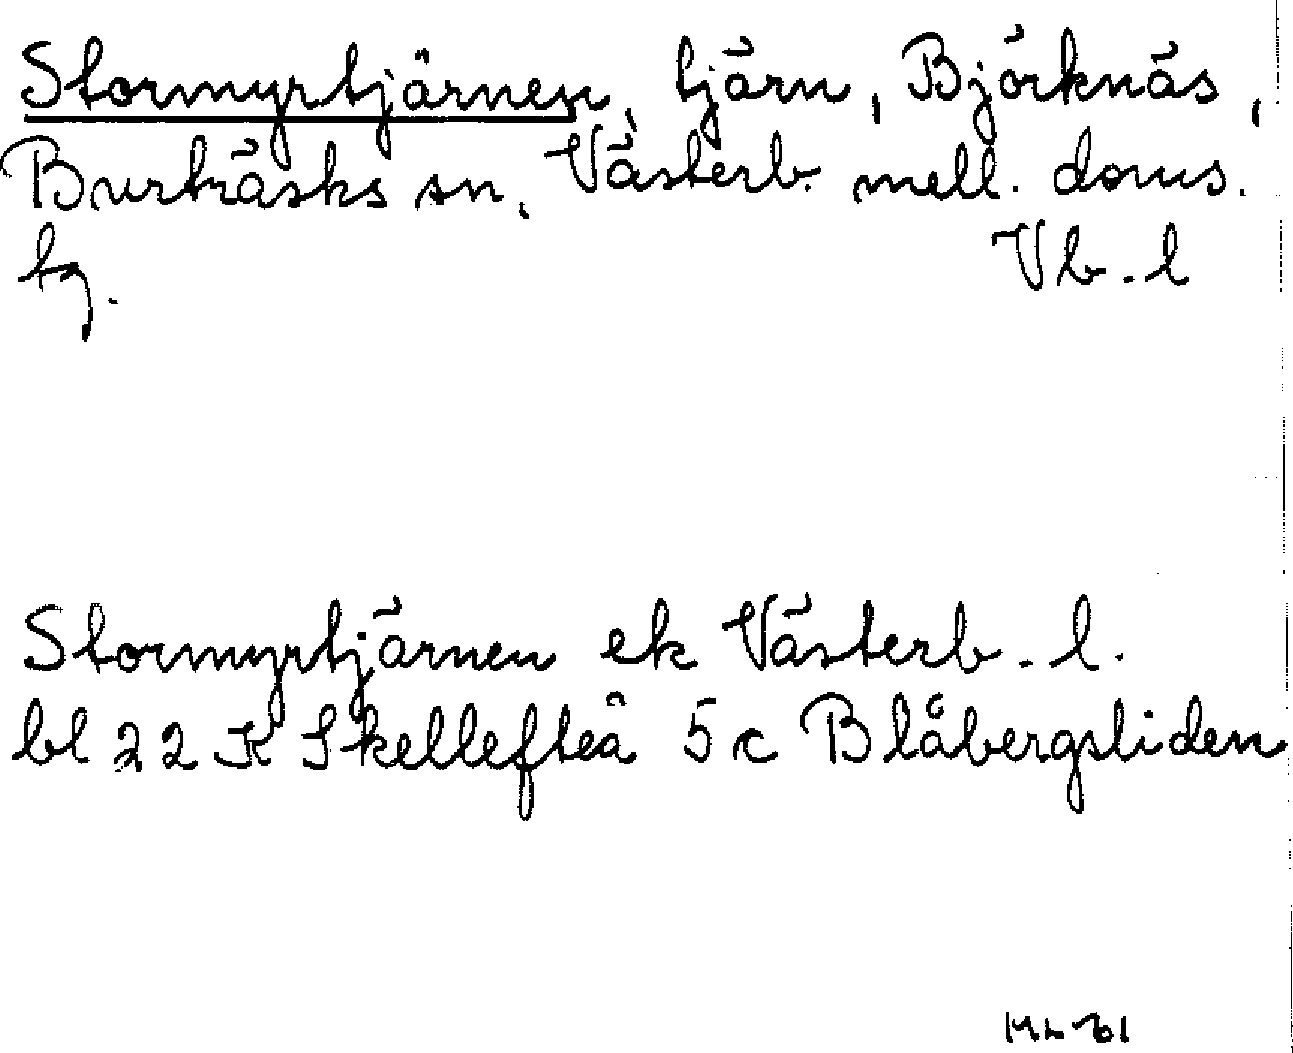 Stormyrtjärnen, tjärn, Björknäs,
Burträsks sn, Västerb. mell. doms.
tg. Vb. l
Stormyrtjärnen ek Västerb. l.
bl 22 K Skellefteå 5 c Blåbergsliden